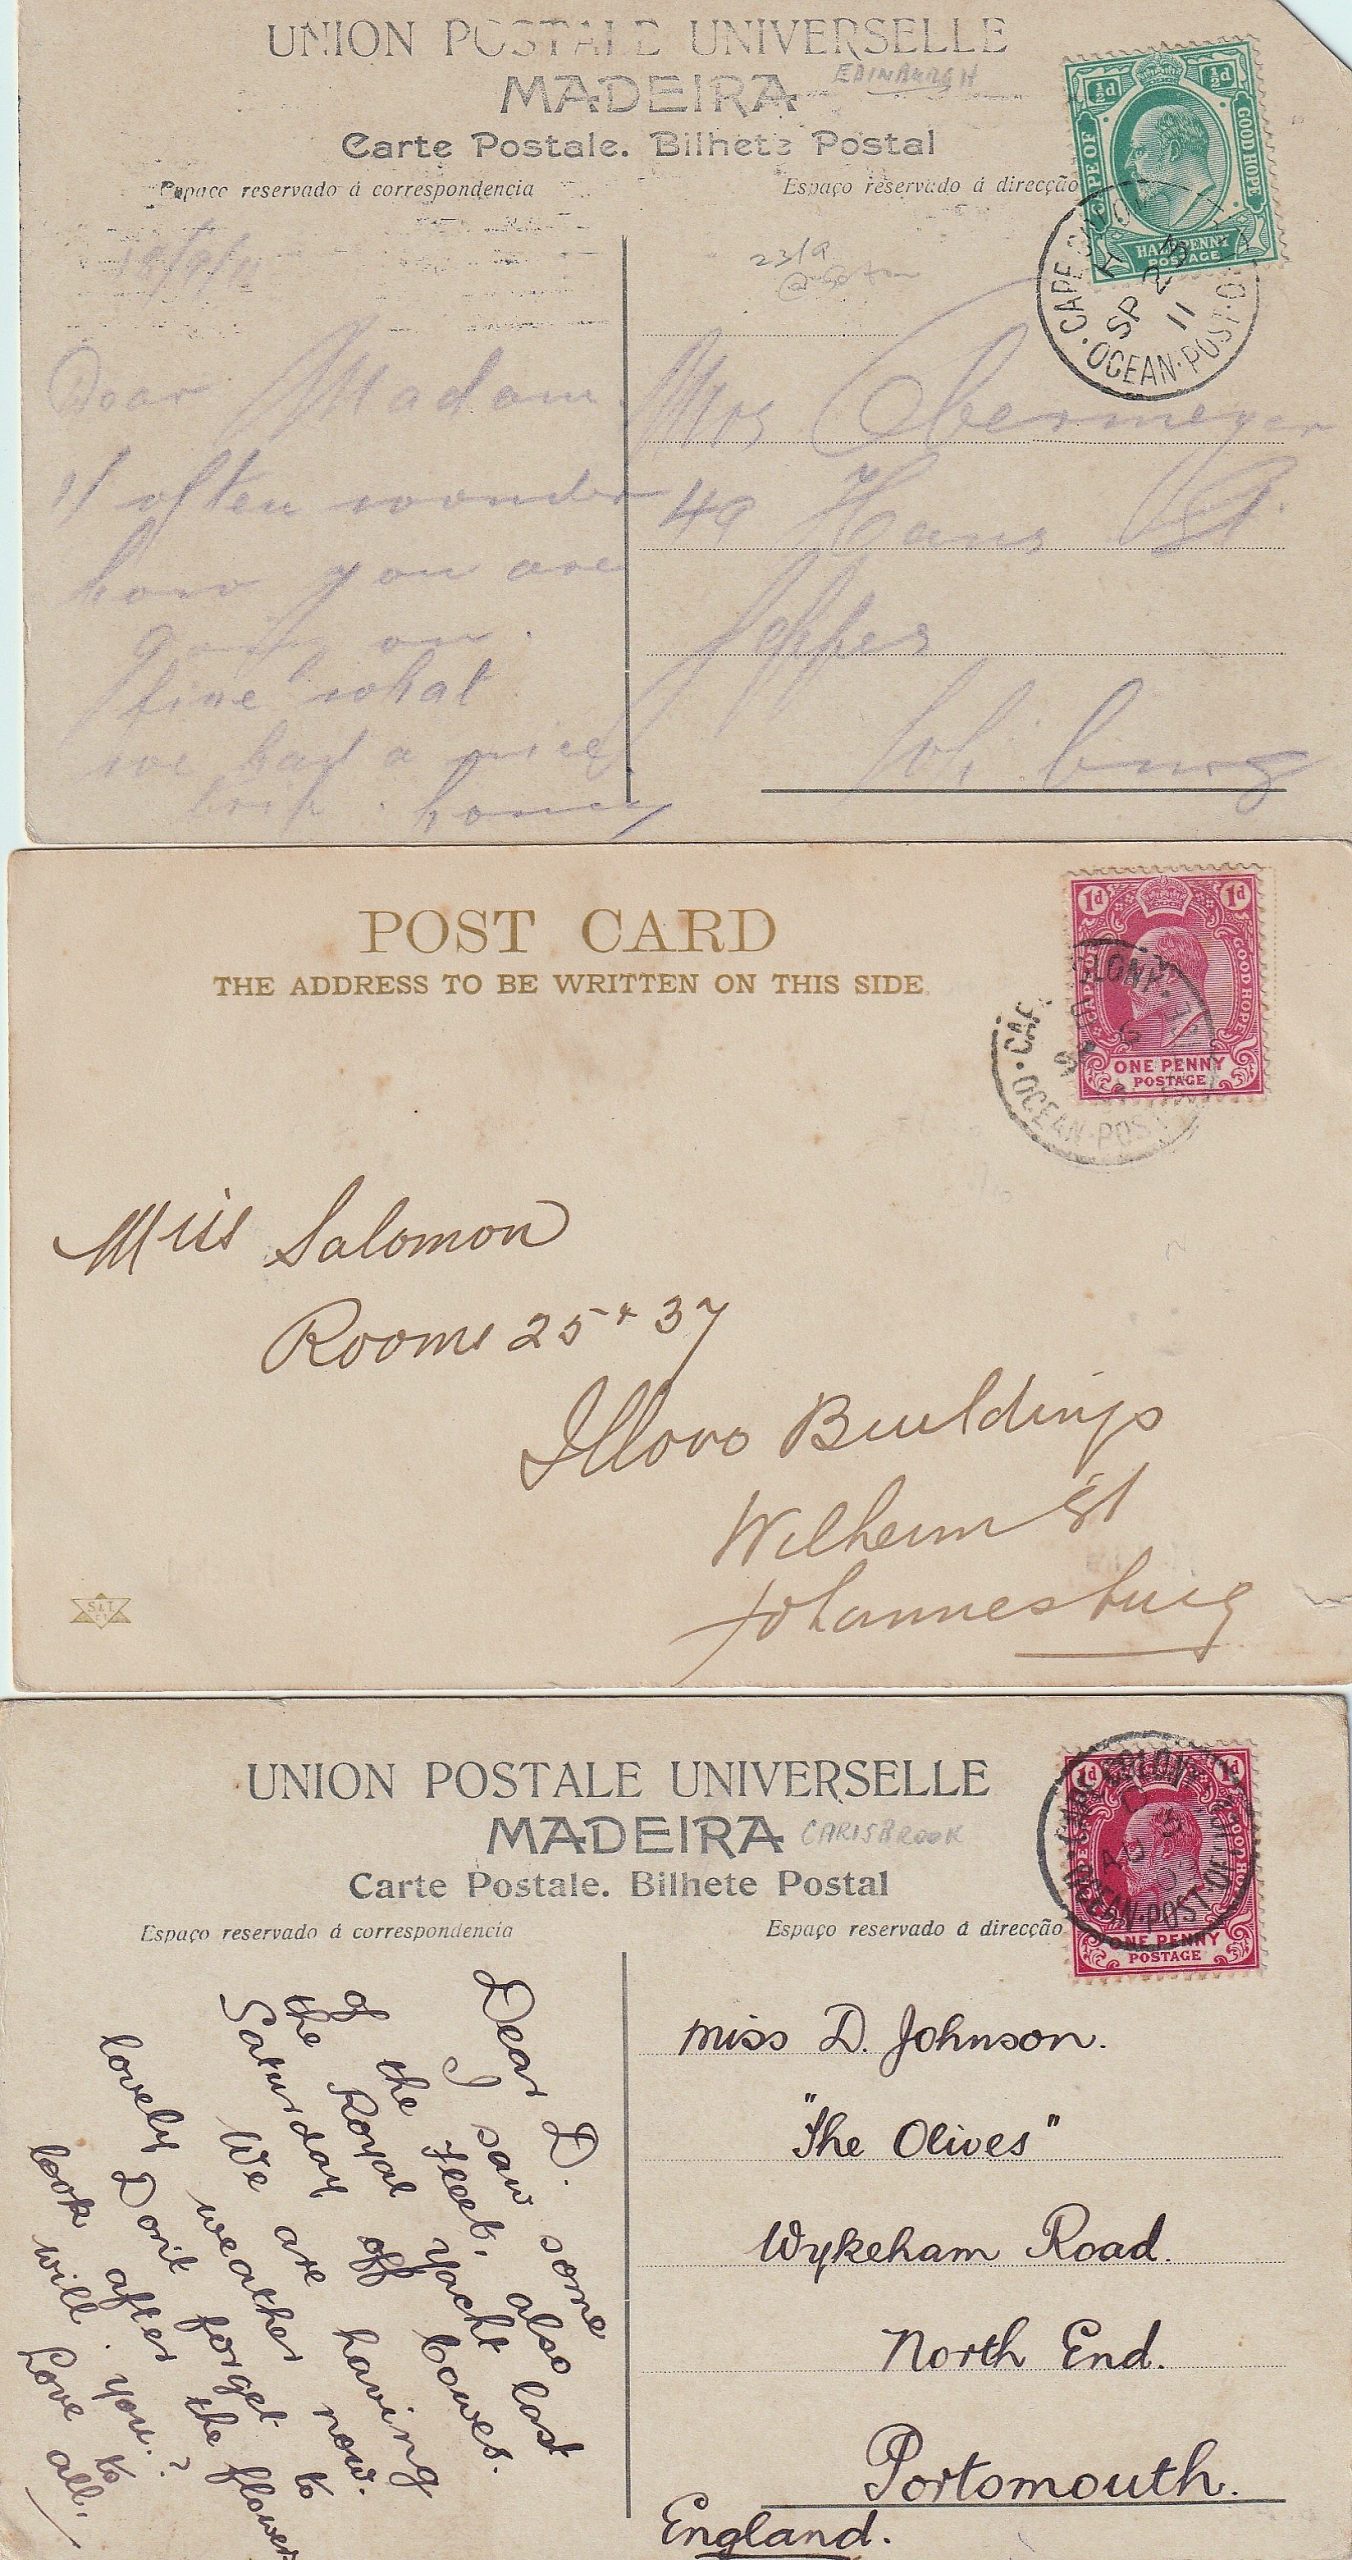 UNION POSTALE UNIVERSELLE
MADEIRA EDINBURGH
Carte Postale. Bilhete Postal
Espaço reservado á correspondencia
Espaço reservado á direcção
½d ½d
CAPE OF GOOD HOPE
HALFPENNY
POSTAGE
CAPE COLONY
SP 23
11
OCEAN·POST·O
18/9/11
Dear Madam
I often wonder
how you are
going on.
fine what
we had a nice
trip home
23/9
Mrs Obermeyer
49 Hans St.
Jeppes
Joh. burg
POST CARD
THE ADDRESS TO BE WRITTEN ON THIS SIDE.
1d 1d
GOOD HOPE
ONE PENNY
POSTAGE
OLONY
OCEAN·POST
Miss Salomon
Rooms 25 + 37
Illovo Buildings
Wilhelm St
Johannesburg
S & T
UNION POSTALE UNIVERSELLE
MADEIRA CARISBROOK
Carte Postale. Bilhete Postal
Espaço reservado á correspondencia
Espaço reservado á direcção
1d 1d
CAPE COLONY
AU 5
OCEAN·POST·O
ONE PENNY
POSTAGE
Dear D.
I saw some
of the fleet, also
the Royal Yacht last
Saturday off Cowes.
We are having
lovely weather now.
Don't forget to
look after the flowers
will you.?
Love to
all.
Miss D. Johnson.
"The Olives"
Wykeham Road.
North End.
Portsmouth.
England.